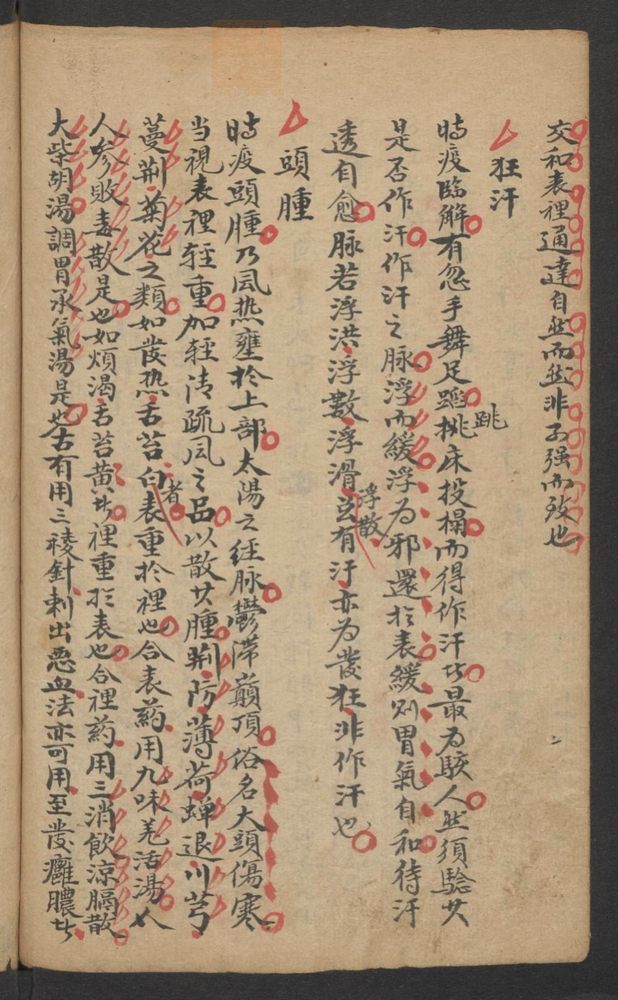 交和表裡通達自然而然非可强而致也
狂汗
時疫臨解有忽手舞足蹈跳床投榻而得作汗者最為駭人然須驗其
是否作汗作汗之脉浮而緩浮為邪還於表緩則胃氣自和待汗
透自愈脉若浮洪浮數浮滑浮散豈有汗亦為發狂非作汗也
頭腫
時疫頭腫乃風热壅於上部太陽之经脉鬱滞巔頂俗名大頭傷寒
当視表裡轻重加轻清疏风之品以散其腫荊防薄荷蝉退川芎
蔓荆菊花之類如發热舌苔白者表重於裡也合表药用九味羌活湯
人参敗毒散是也如煩渴舌苔黄者裡重於表也合裡药用三消飲涼膈散
大柴胡湯調胃承氣湯是也古有用三稜針刺出恶血法亦可用至發癰膿者